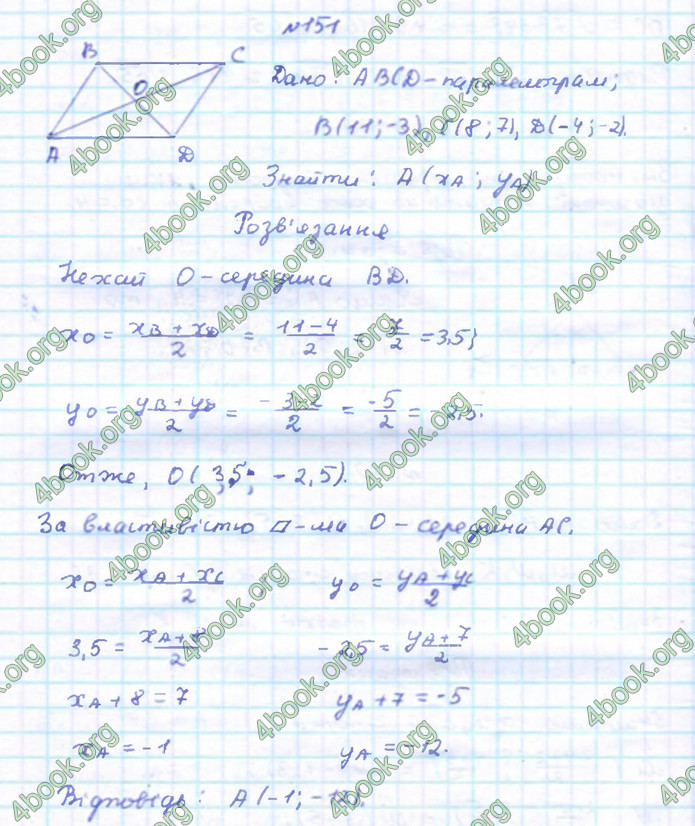 №151
B C
O
A D
Дано: ABCD - паралелограм;
B(11; -3), C(8; 7), D(-4; -2).
Знайти: A(xA; yA)
Розв'язання
Нехай O - середина BD.
xO = xB + xD / 2 = 11 - 4 / 2 = 7 / 2 = 3,5;
yO = yB + yD / 2 = -3-2 / 2 = -5 / 2 = -2,5.
Отже, O(3,5; -2,5).
За властивістю ▱-ма O - середина AC.
xO = xA + xC / 2 yO = yA + yC / 2
3,5 = xA + 8 / 2 -2,5 = yA + 7 / 2
xA + 8 = 7 yA + 7 = -5
xA = -1 yA = -12.
Відповідь: A(-1; -12).
4book.org